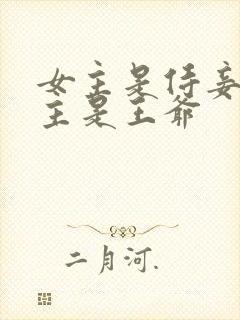 女主是侍妾
主是王爷
二月河.